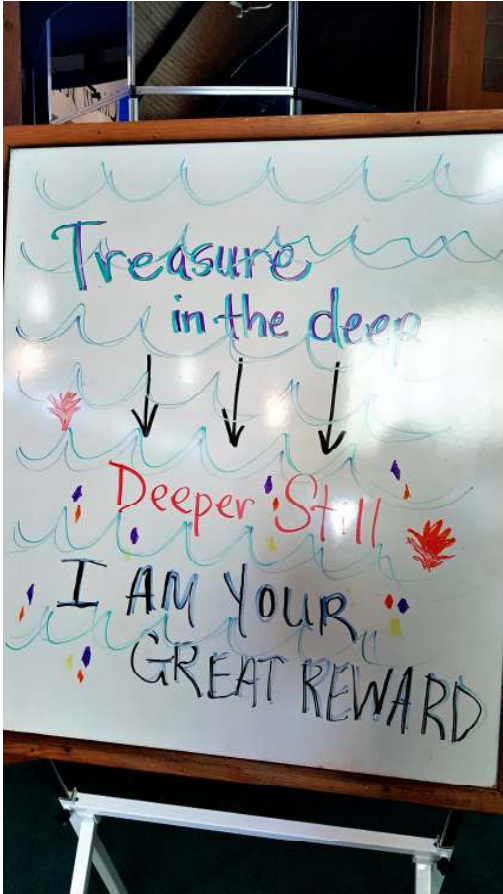 Treasure
in the deep
Deeper Still
I AM YOUR
GREAT REWARD